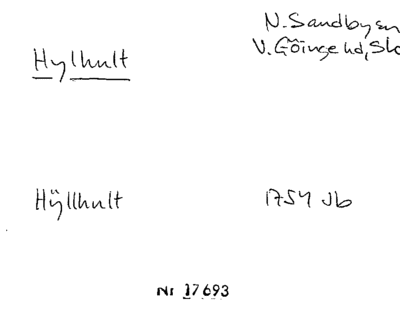 Hylhult
N. Sandby sn
V. Göinge hd, Sk
Hÿllhult 1754 Jb
Nr 17693